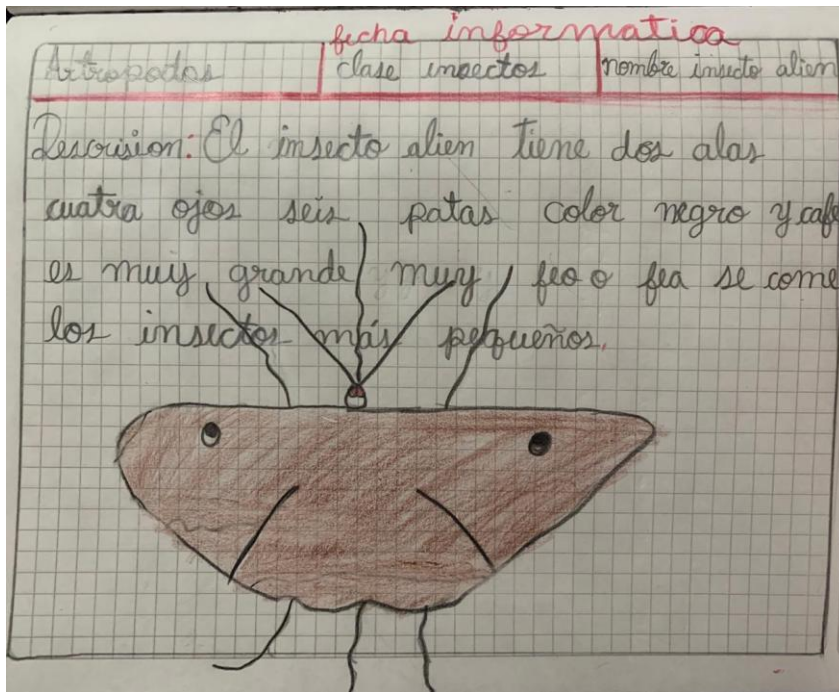 fecha informatica
Artropodos clase insectos nombre insecto alien
Descrision: El insecto alien tiene dos alas
cuatra ojos seis patas color negro y cafe
es muy grande muy feo o fea se come
los insectos más pequeños.